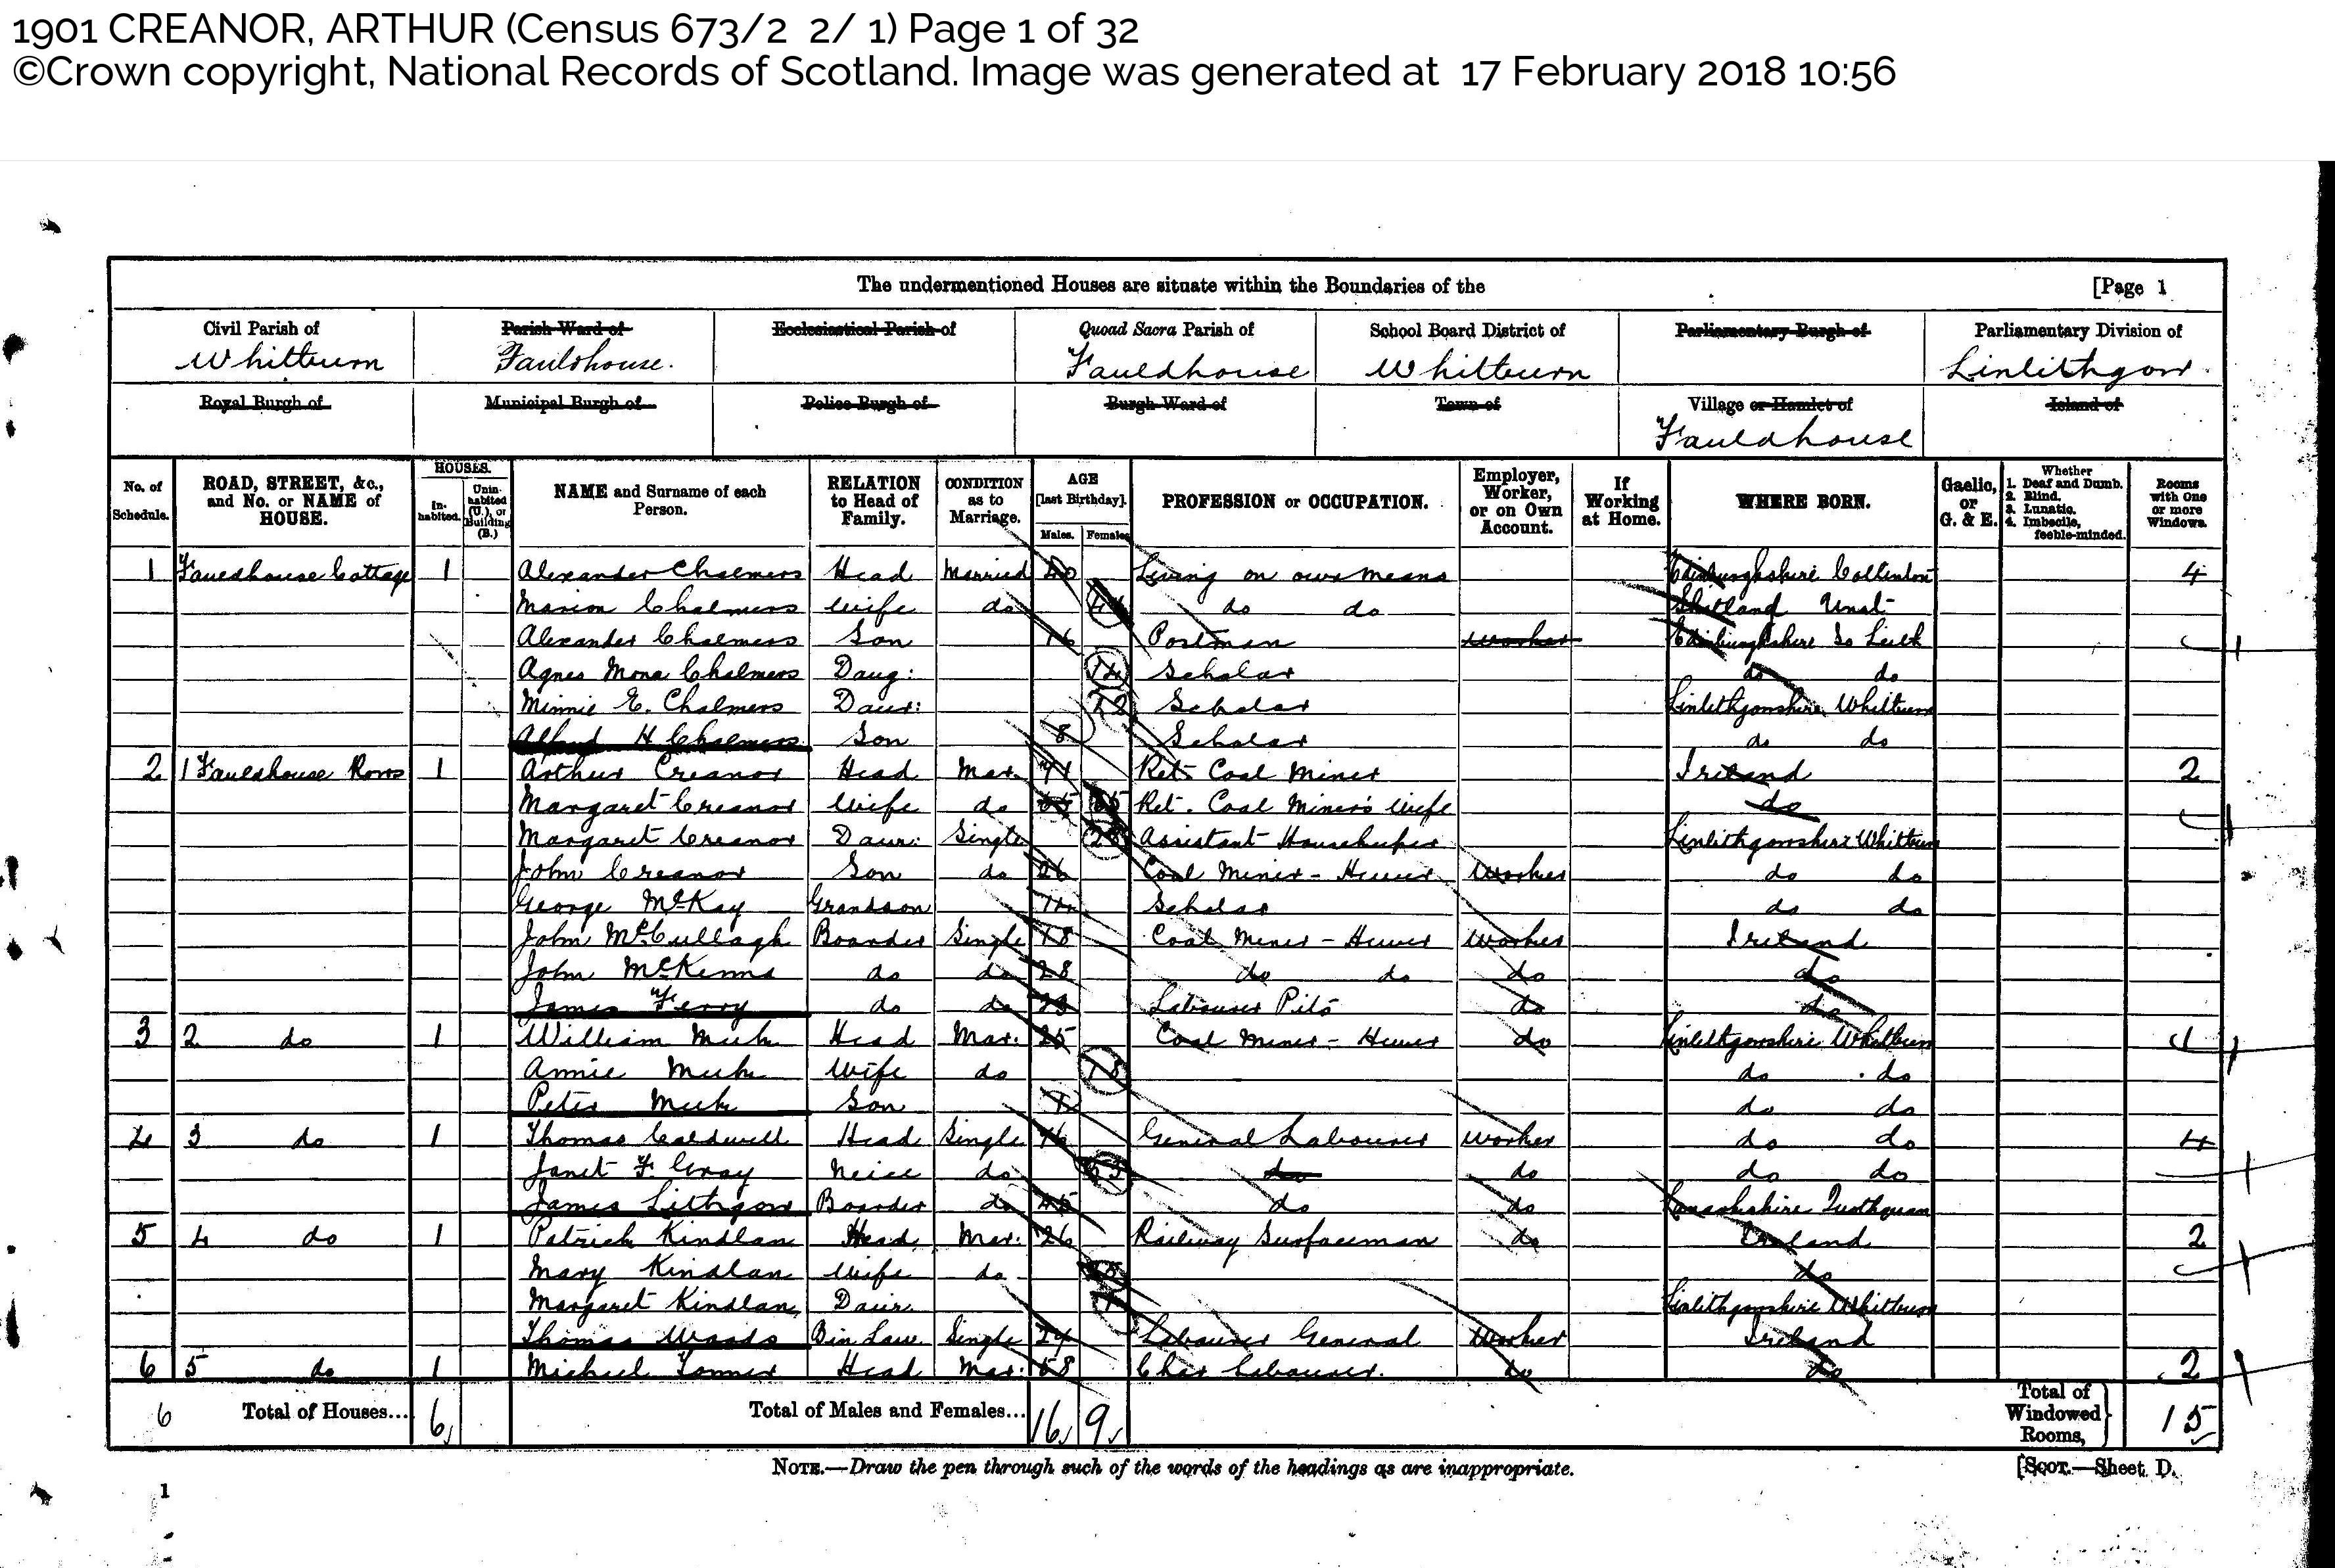 1901 CREANOR, ARTHUR (Census 673/2 2/ 1) Page 1 of 32
©Crown copyright, National Records of Scotland. Image was generated at 17 February 2018 10:56
The undermentioned Houses are situate within the Boundaries of the [Page 1
Civil Parish of Parish Ward of Ecclesiastical Parish of Quoad Sacra Parish of School Board District of Parliamentary Burgh of Parliamentary Division of
Whitburn Fauldhouse. Fauldhouse Whitburn Linlithgow.
Royal Burgh of Municipal Burgh of Police Burgh of Burgh Ward of Town of Village or Hamlet of Island of
Fauldhouse
No. of Schedule. ROAD, STREET, &c., and No. or NAME of HOUSE. HOUSES. Inhabited. Uninhabited (U.), or Building (B.) NAME and Surname of each Person. RELATION to Head of Family. CONDITION as to Marriage. AGE [last Birthday]. Males. Females PROFESSION or OCCUPATION. Employer, Worker, or on Own Account. If Working at Home. WHERE BORN. Gaelic, or G. & E. Whether 1. Deaf and Dumb. 2. Blind. 3. Lunatic. 4. Imbecile, feeble-minded. Rooms with One or more Windows.
1 Fauldhouse Cottage 1 Alexander Chalmers Head Married 40 Living on own means Edinburghshire Collinton 4
Marion Chalmers Wife do do do Shetland Unst
Alexander Chalmers Son 16 Postman Worker Edinburghshire So Leith
Agnes Mona Chalmers Daug: 14 Scholar do do
Minnie E. Chalmers Daur: 12 Scholar Linlithgowshire Whitburn
Alfred H Chalmers Son 8 Scholar do do
2 1 Fauldhouse Rows 1 Arthur Creanor Head Mar. 71 Ret. Coal Miner Ireland 2
Margaret Creanor Wife do 65 65 Ret. Coal Miner's Wife do
Margaret Creanor Daur: Single 28 Assistant Housekeeper Linlithgowshire Whitburn
John Creanor Son do 26 Coal Miner - Hewer Worker do do
George McKay Grandson 14 Scholar do do
John McCullagh Boarder Single 18 Coal Miner - Hewer Worker Ireland
John McKenna do do 28 do do do do
James Ferry do do 23 Labourer Pits do do
3 2 do 1 William Muir Head Mar. 25 Coal Miner - Hewer do Linlithgowshire Whitburn 1
Annie Muir Wife do 18 do do
Peter Muir Son 1 do do
4 3 do 1 Thomas Caldwell Head Single 76 General Labourer Worker do do 4
Janet F. Gray Neice do do do do do
James Lithgow Boarder do 45 do do Lanarkshire
5 4 do 1 Patrick Kindlan Head Mar: 26 Railway Surfaceman do Ireland 2
Mary Kindlan Wife do do
Margaret Kindlan Daur. 1 Linlithgowshire Whitburn
Thomas Woods B in Law Single 24 Labourer General Worker Ireland
6 5 do 1 Michael Head Mar: 58 Labourer. do do 2
6 Total of Houses... 6 Total of Males and Females... 16 9 Total of Windowed Rooms, 15
NOTE.—Draw the pen through such of the words of the headings as are inappropriate. [SCOT.—Sheet D.
1